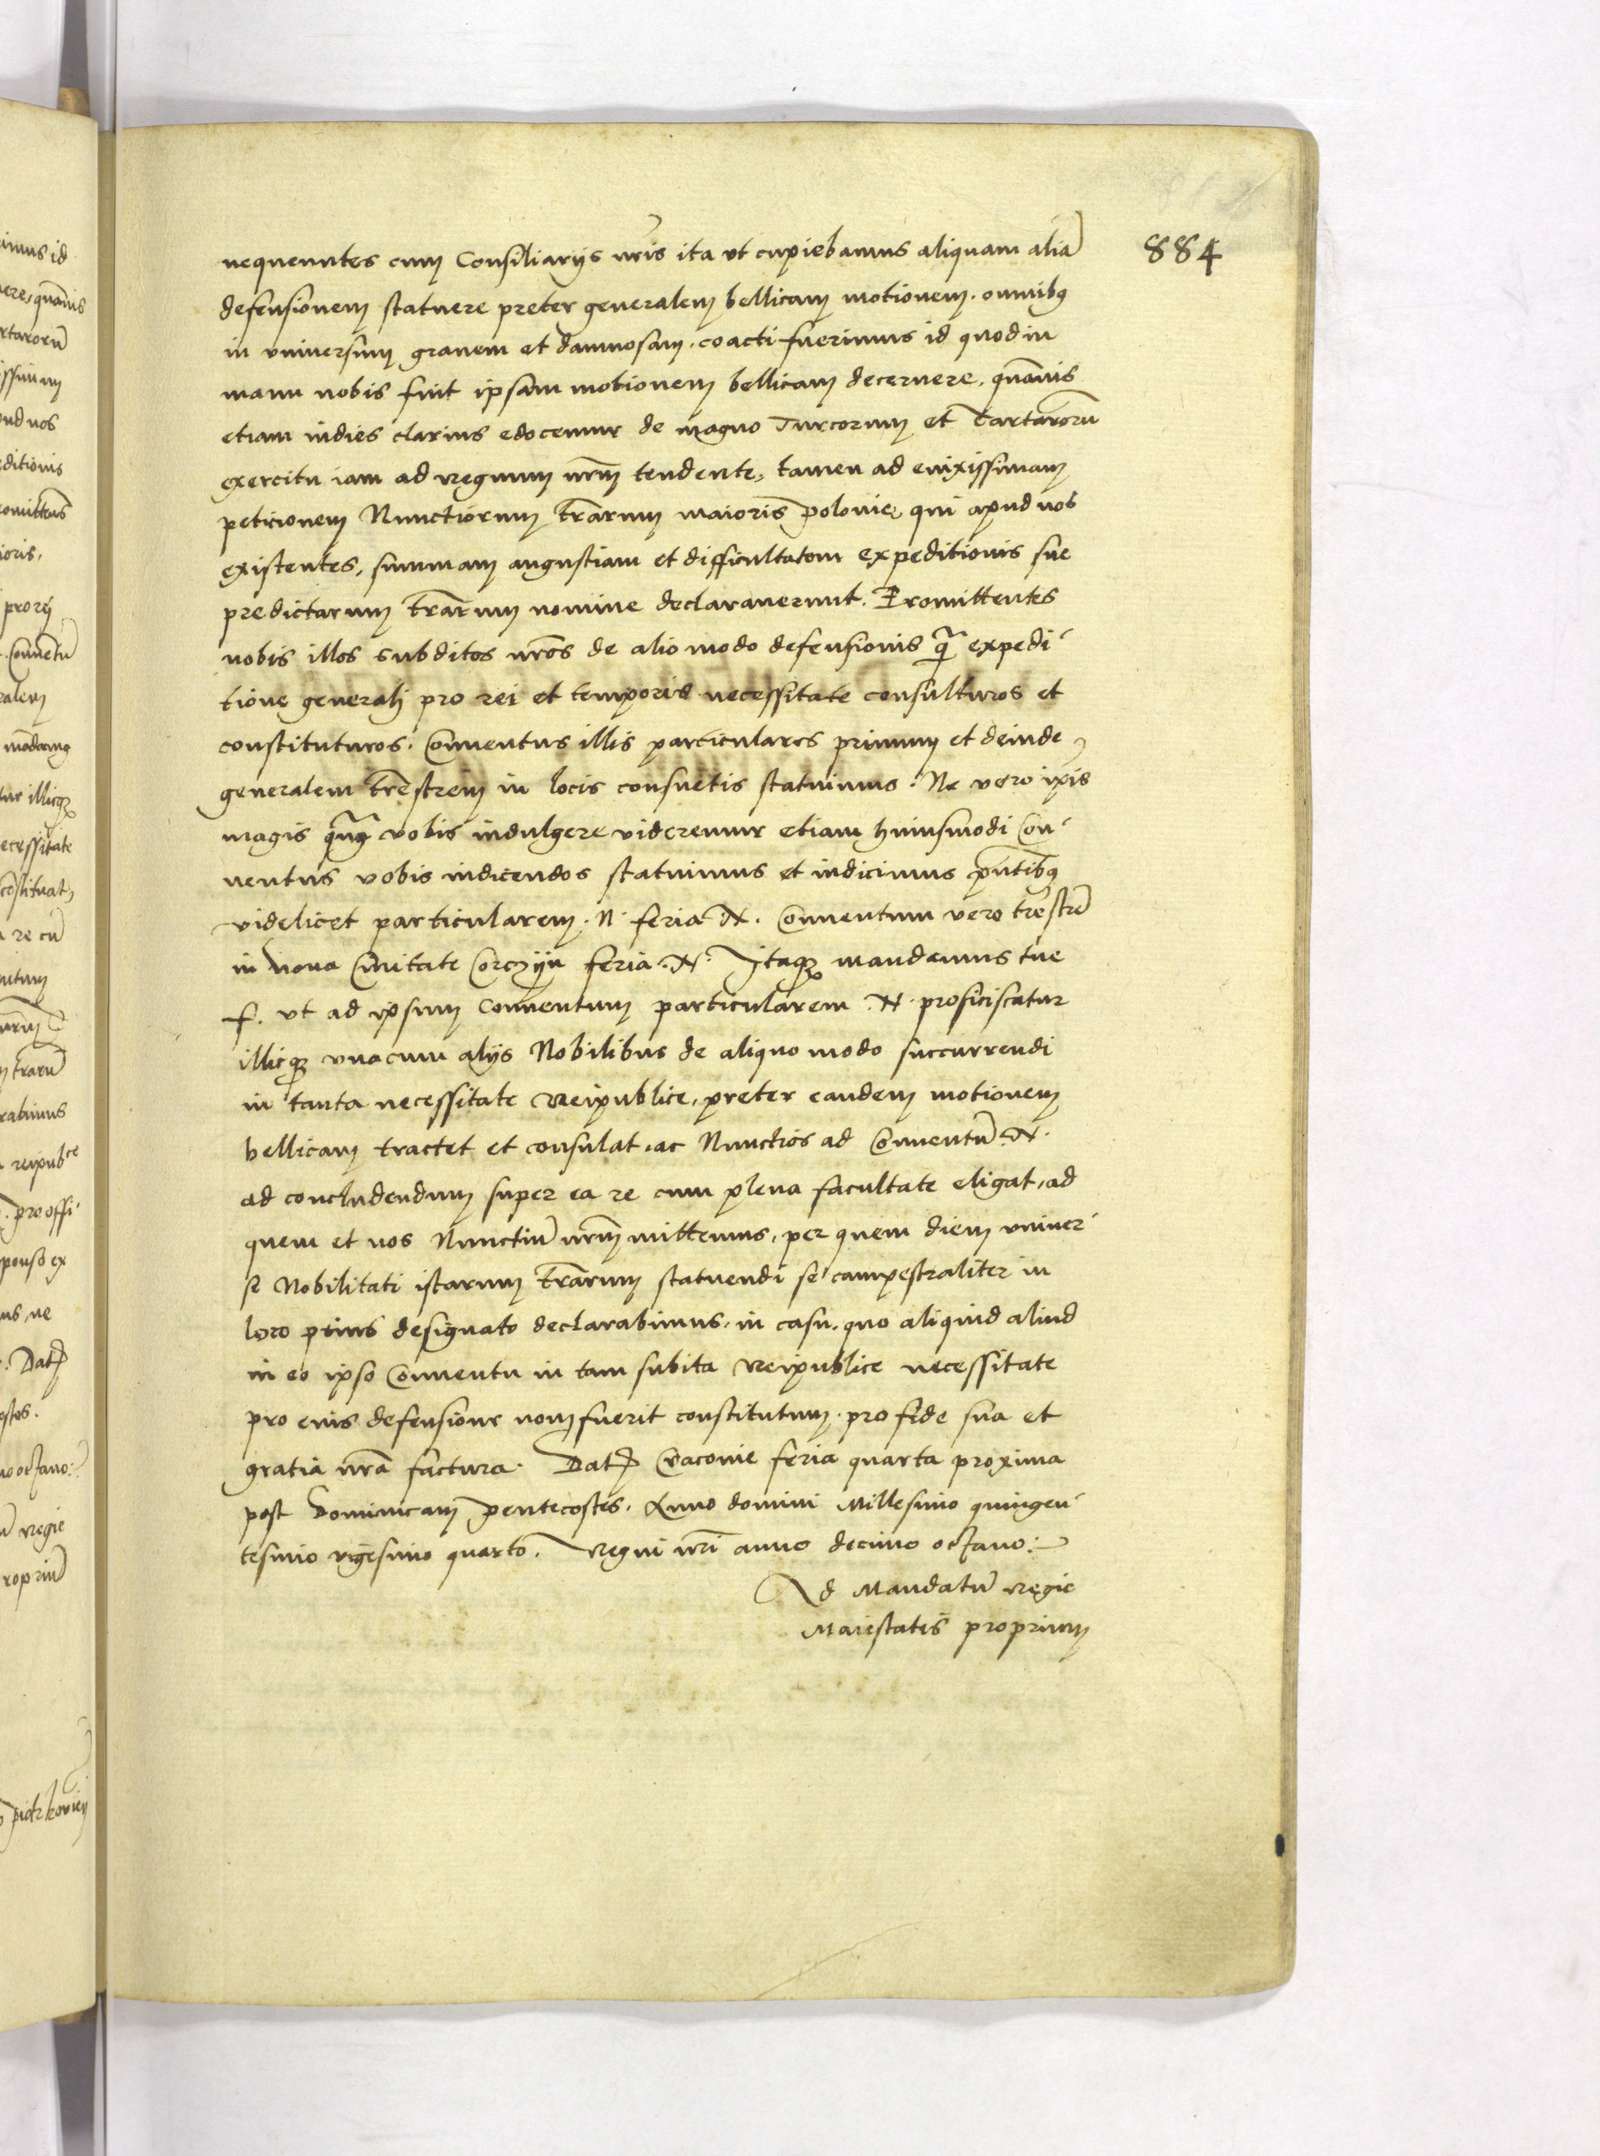 884
nequeuntes cum Consiliariis nr̃is ita ut cupiebamus aliquam aliã
defensionem statuere preter generalem bellicam motionem. omnibq
in universum gravem et damnosam. coacti fuerimus id quod in
manu nobis fuit ipsam motionem bellicam decernere. quãvis
etiam indies clarius edocemur de magno Turcorum et Tartarorũ
exercitu iam ad regnum nrm̃ tendente, tamen ad enixissimam
peticionem Nunctiorum tr̃arum maioris polonie, qui apud nos
existentes, summam angustiam et difficultatem expeditionis sue
predictarum tr̃arum nomine declaraverunt. Promittentes
nobis illos subditos nr̃os de alio modo defensionis q̃ expedi
tione generali pro rei et temporis necessitate consulturos et
constituturos. Conventus illis particulares primum et deinde
generalem tr̃estrem in locis consuetis statuimus. Ne vero ip̃is
magis quãq vobis indulgere videremur etiam huiusmodi Con
ventus vobis indicendos statuimus et indicimus pñtibq
videlicet particularem. N. feria. N. Conventum vero tr̃estrẽ
in Nova Civitate Corczyn feria. N. Itaq̃ mandamus tue
f. ut ad ipsum Conventum particularem. N. proficiscatur
illicq̃ unacum aliis Nobilibus de aliquo modo succurrendi
in tanta necessitate reipublice, preter eandem motionem
bellicam tractet et consulat. ac Nunctios ad Conventũ. N.
ad concludendum super ea re cum plena facultate eligat, ad
quem et nos Nunctiũ nrm̃ mittemus, per quem diem univer
se Nobilitati istarum tr̃arum statuendi se campestraliter in
loco prius designato declarabimus. in casu. quo aliquid aliud
in eo ipso Conventu in tam subita reipublice necessitate
pro eius defensione non fuerit constitutum. pro fide sua et
gratia nr̃a factura. Dat̃ Cracovie feria quarta proxima
post Dominicam pentecostes. Anno domini Millesimo quingen
tesimo vigesimo quarto. Regni nr̃i anno decimo octavo:
Ad Mandatũ regie
Maiestatis proprium